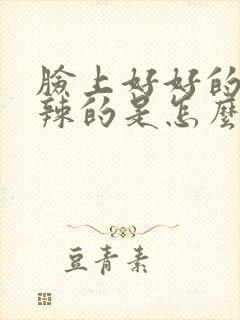 臉上好好的
辣的是怎麼
豆青素